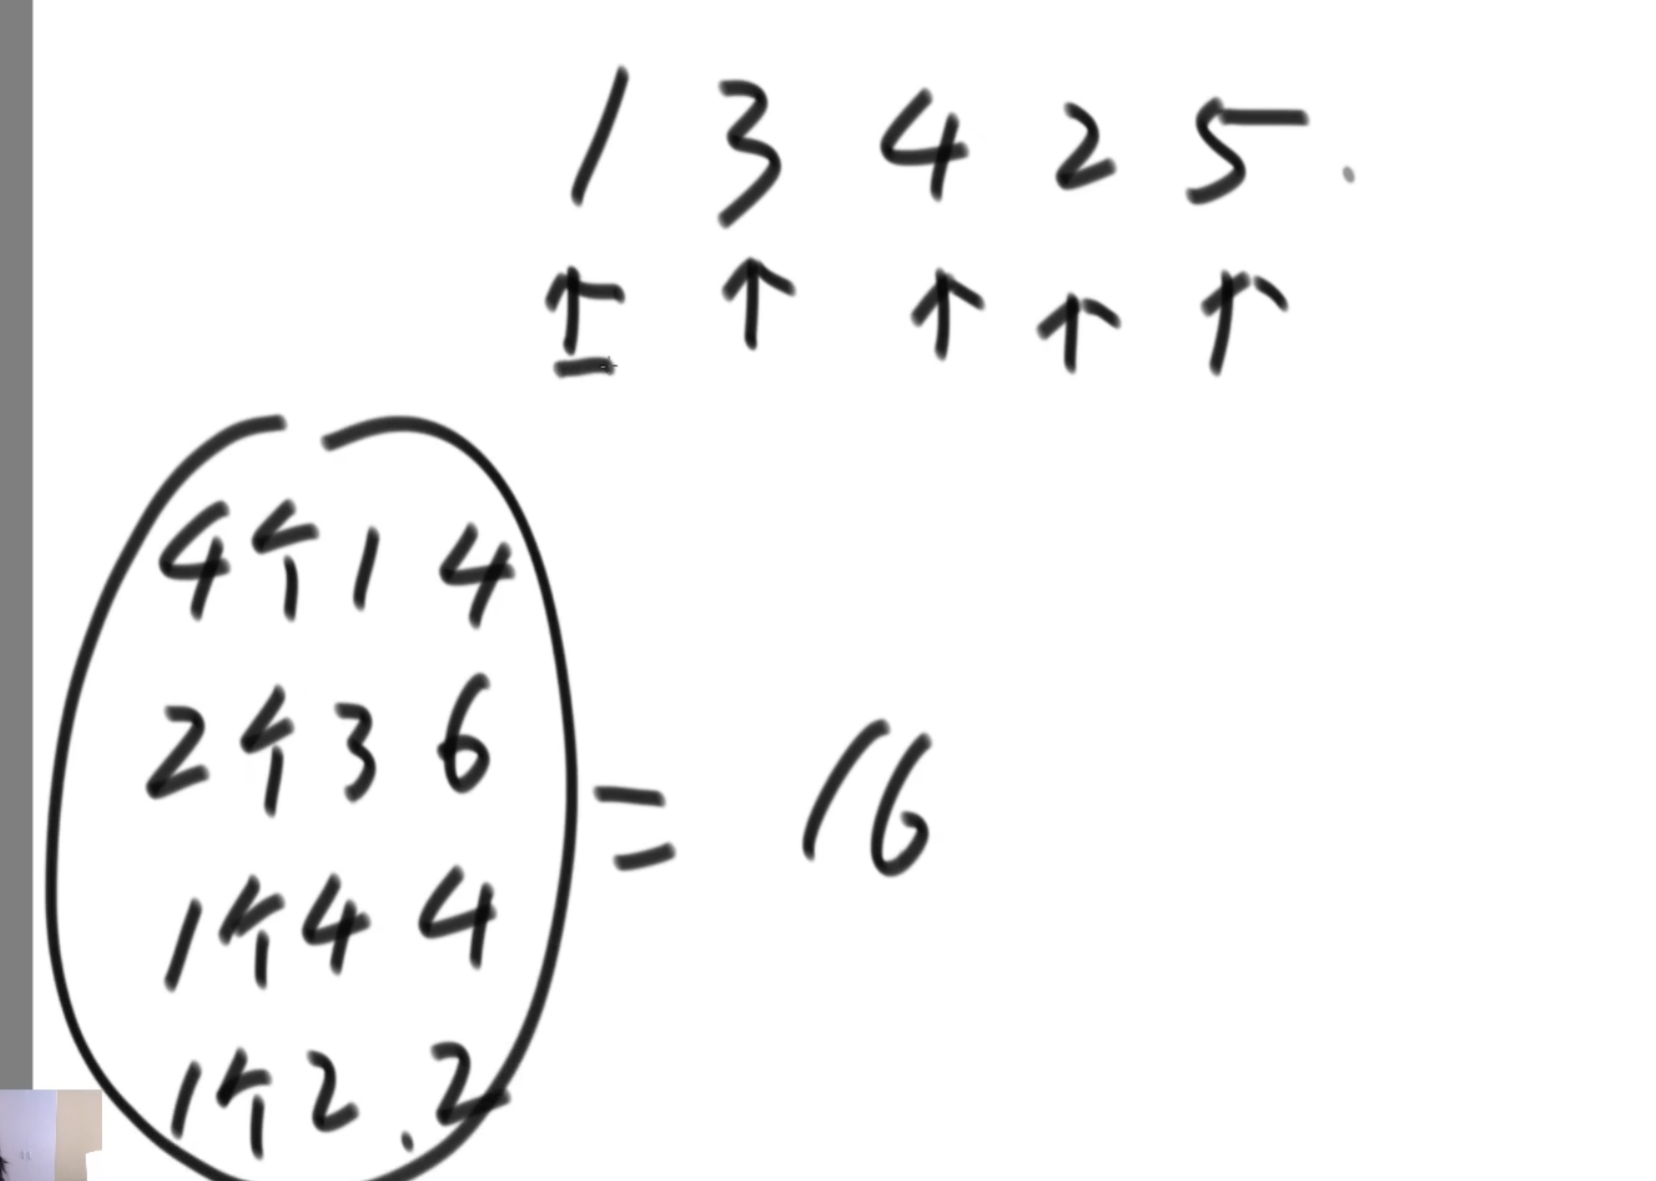 1 3 4 2 5.
↑ ↑ ↑ ↑ ↑
4个1 4
2个3 6
1个4 4
1个2. 2
= 16